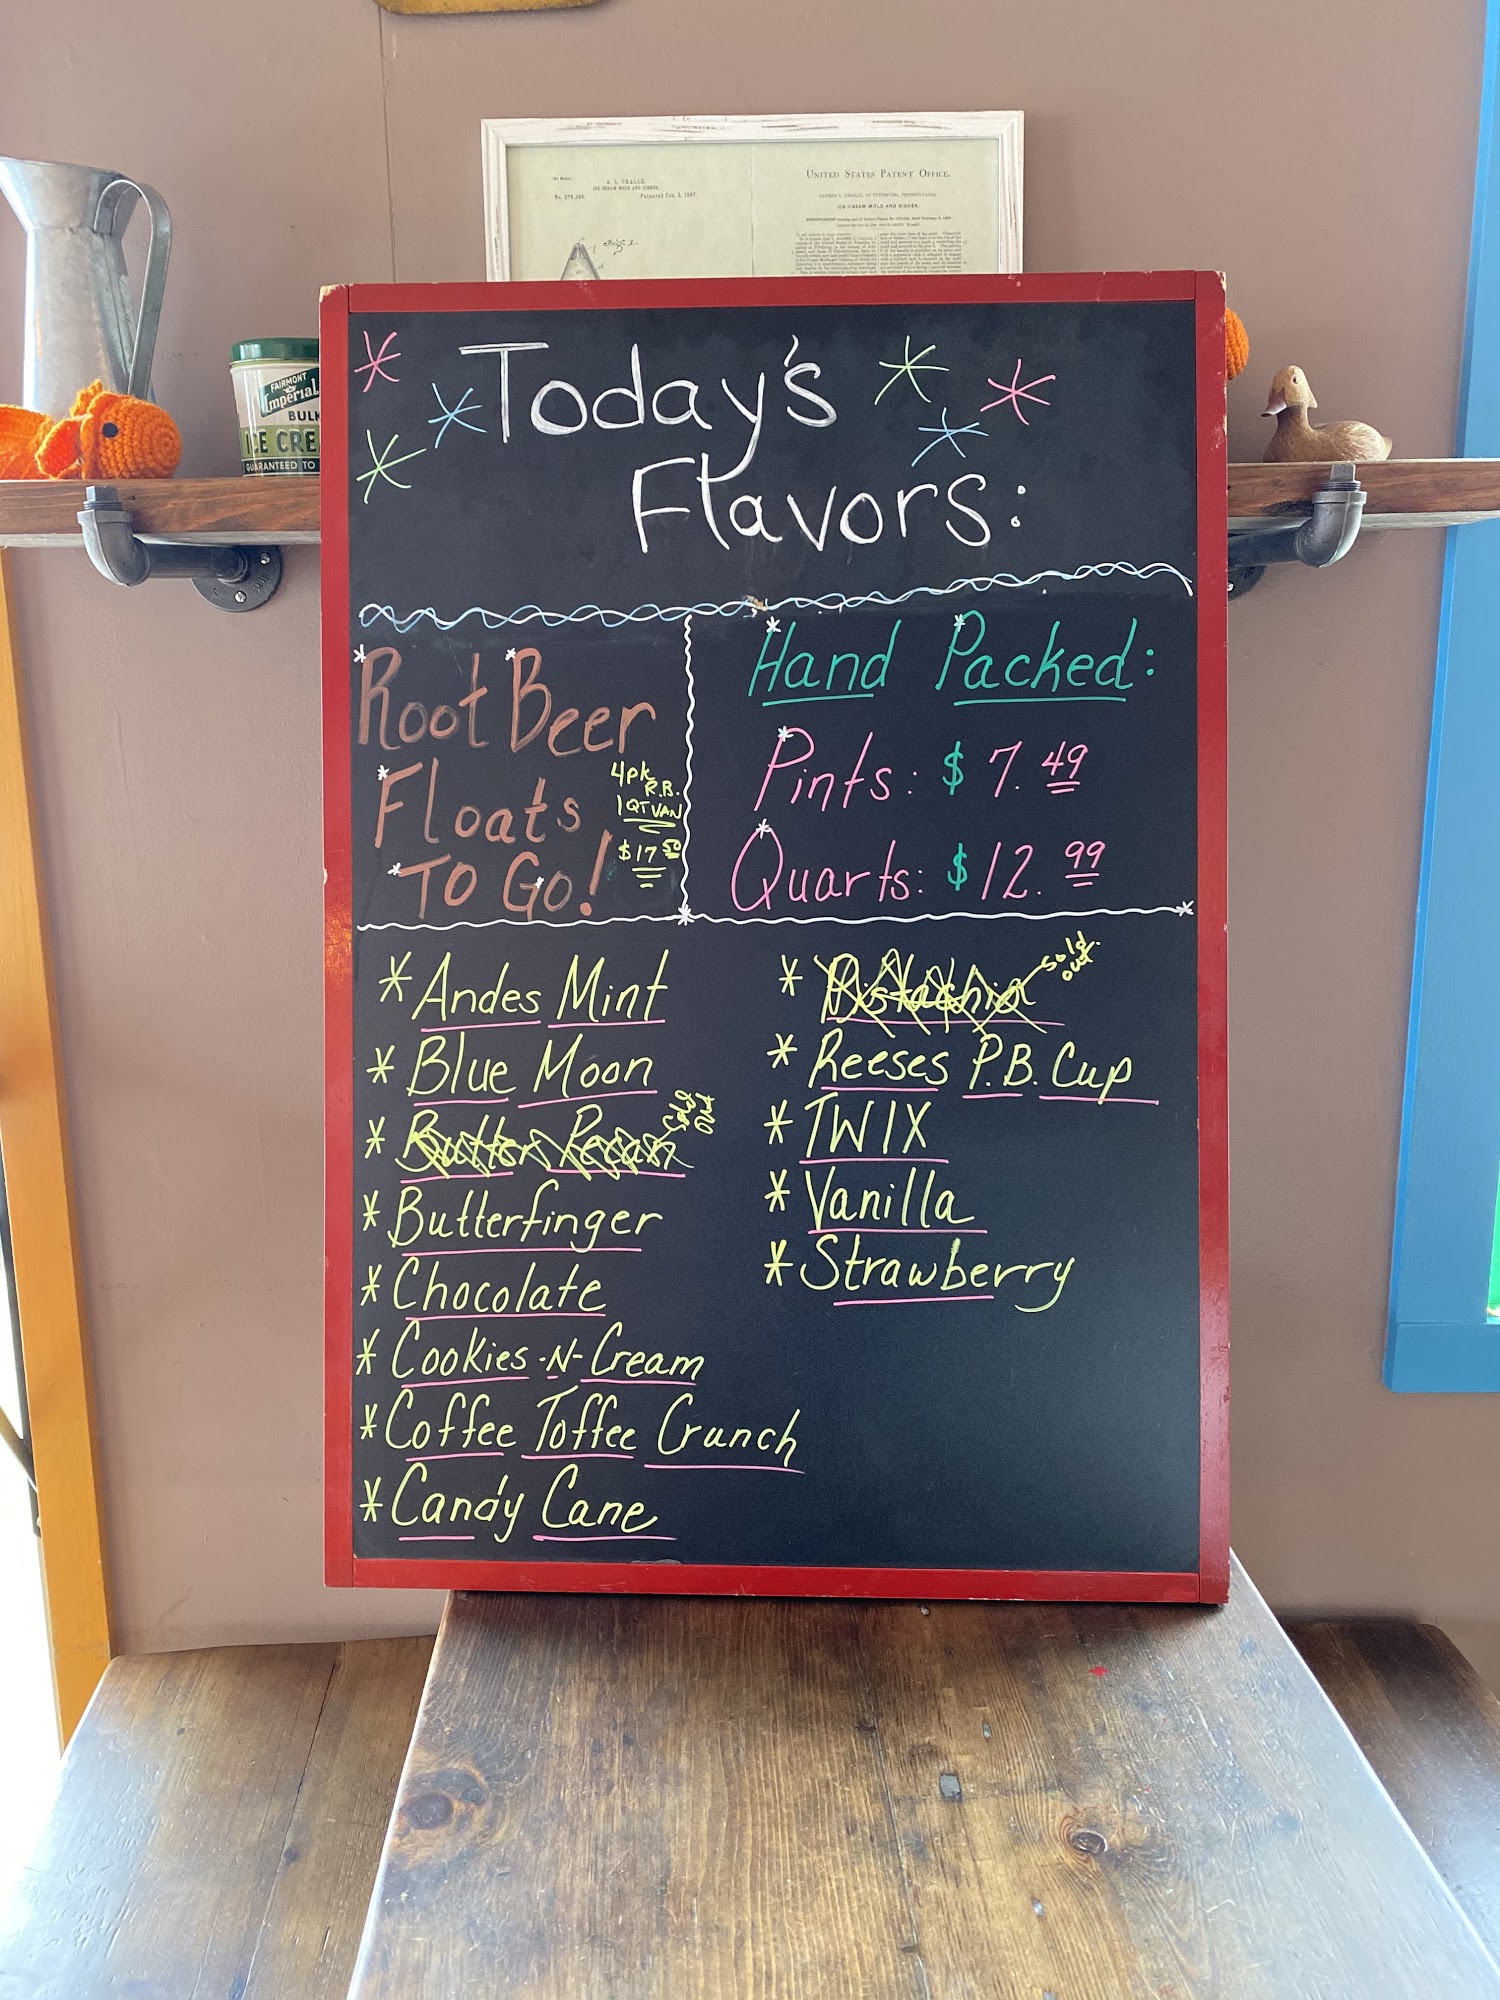 (No Model.)
A. L. CRALLE.
ICE CREAM MOLD AND DISHER.
No. 576,395. Patented Feb. 2, 1897.
Fig. 1.
UNITED STATES PATENT OFFICE.
ALFRED L. CRALLE, OF PITTSBURG, PENNSYLVANIA.
ICE-CREAM MOLD AND DISHER.
FAIRMONT
Imperial
BULK
ICE CRE
GUARANTEED TO
Today's
Flavors:
Root Beer
Floats
TO GO!
4pk
R.B.
1 QT VAN
$17 50
Hand Packed:
Pints: $ 7. 49
Quarts: $ 12. 99
* Andes Mint
* Blue Moon
* Butter Pecan sold out
* Butterfinger
* Chocolate
* Cookies -N- Cream
* Coffee Toffee Crunch
* Candy Cane
* Pistachio sold out.
* Reeses P.B. Cup
* TWIX
* Vanilla
* Strawberry